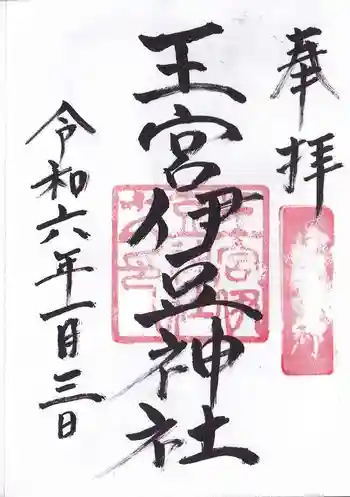 奉拝
王宮伊豆神社
令和六年一月三日